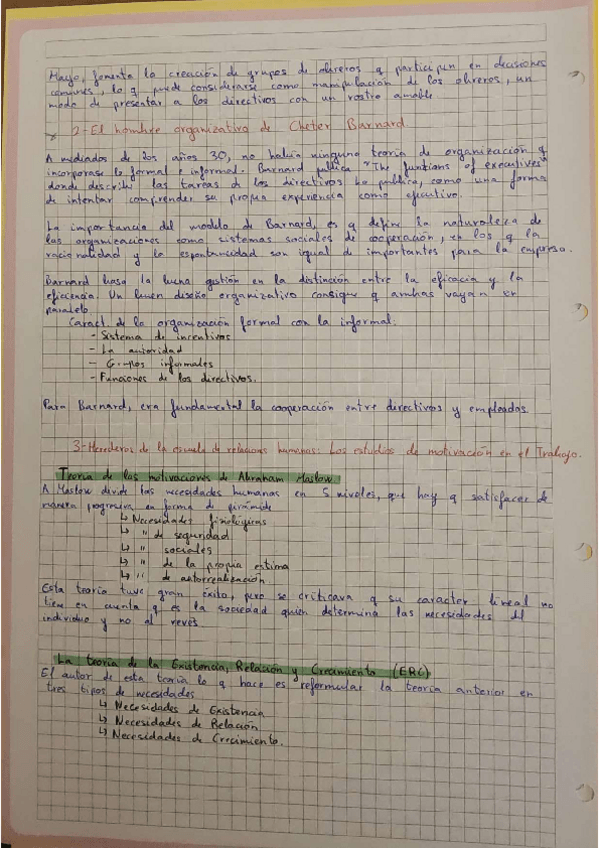 Mayo, fomenta la creación de grupos de obreros q participen en decisiones
comunes, lo q puede considerarse como manipulación de los obreros, un
modo de presentar a los directivos con un rostro amable
2-El hombre organizativo de Cheter Barnard.
A mediados de los años 30, no había ninguna teoría de organización q
incorporase lo formal e informal. Barnard publica "The funtions of executives"
donde describe las tareas de los directivos. Lo publica, como una forma
de intentar comprender su propia experiencia como ejecutivo.
La importancia del modelo de Barnard, es q define la naturaleza de
las organizaciones como sistemas sociales de cooperación, en los q la
racionalidad y la espontaneidad son igual de importantes para la empresa.
Barnard basa la buena gestión en la distinción entre la eficacia y la
eficiencia. Un buen diseño organizativo consigue q ambas vayan en
paralelo.
Caract. de la organización formal con la informal:
- Sistema de incentivos
- La autoridad
- Grupos informales
- Funciones de los directivos.
Para Barnard, era fundamental la cooperación entre directivos y empleados.
3-Herederos de la escuela de relaciones humanas: Los estudios de motivación en el Trabajo.
Teoría de las motivaciones de Abraham Maslow.
A Maslow divide las necesidades humanas en 5 niveles, que hay q satisfacer de
manera progresiva, en forma de pirámide
↳ Necesidades fisiológicas
↳ " de seguridad
↳ " sociales
↳ " de la propia estima
↳ " de autorrealización.
Esta teoría tuvo gran éxito, pero se criticava q su caracter lineal no
tiene en cuenta q es la sociedad quien determina las necesidades del
individuo y no al revés.
La teoría de la Existencia, Relación y Crecimiento (ERC)
El autor de esta teoría lo q hace es reformular la teoría anterior en
tres tipos de necesidades
↳ Necesidades de Existencia
↳ Necesidades de Relación
↳ Necesidades de Crecimiento.